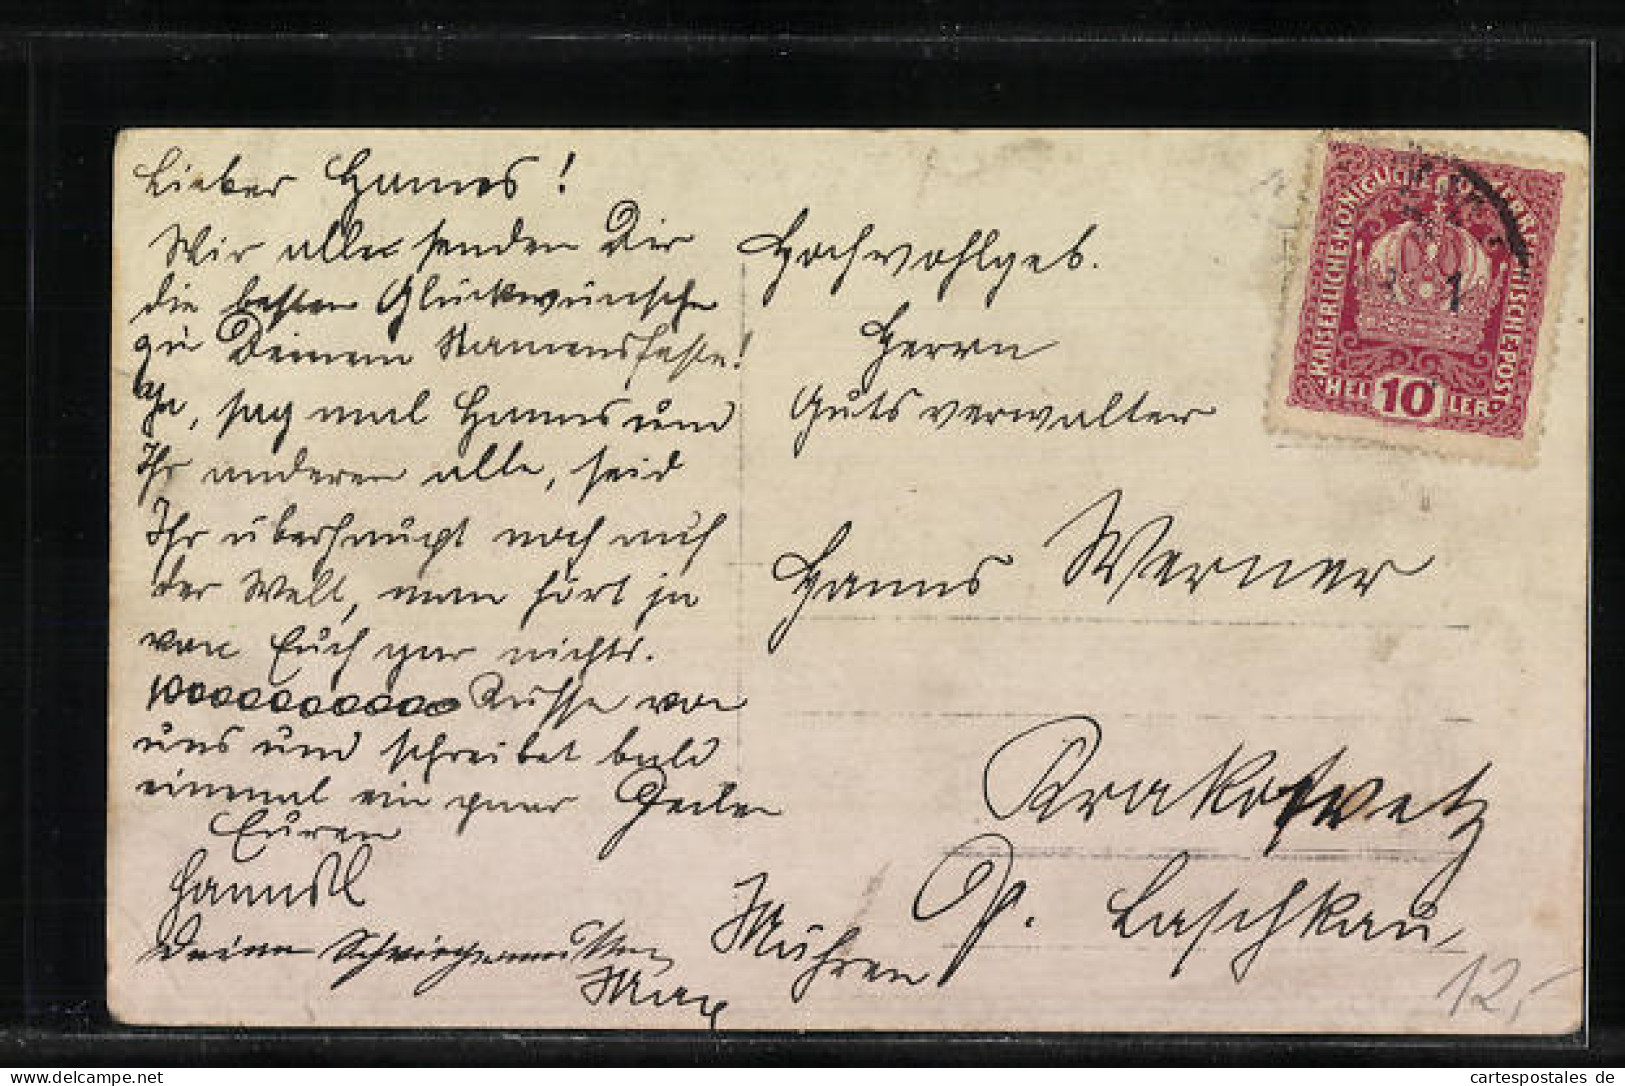 Lieber Hanns!
Wir alle senden Dir
die besten Glückwünsche
zu Deinem Namensfeste!
Ja, sag mal Hanns und
Ihr anderen alle, seid
Ihr überhaupt noch auf
der Welt, man hört ja
von Euch gar nichts.
10000000000 Küsse von
uns und schreibet bald
einmal ein paar Zeilen
Euren
Hannsl
Deine Schwiegermutter
Hochwohlgeb.
Herrn
Gutsverwalter
Hanns Werner
Krakowetz
P. Laschkau,
Mähren
KAISERLICHE KÖNIGLICHE ÖSTERREICHISCHE POST
HELLER
10
1
12,-
Delcampe.net
cartespostales de